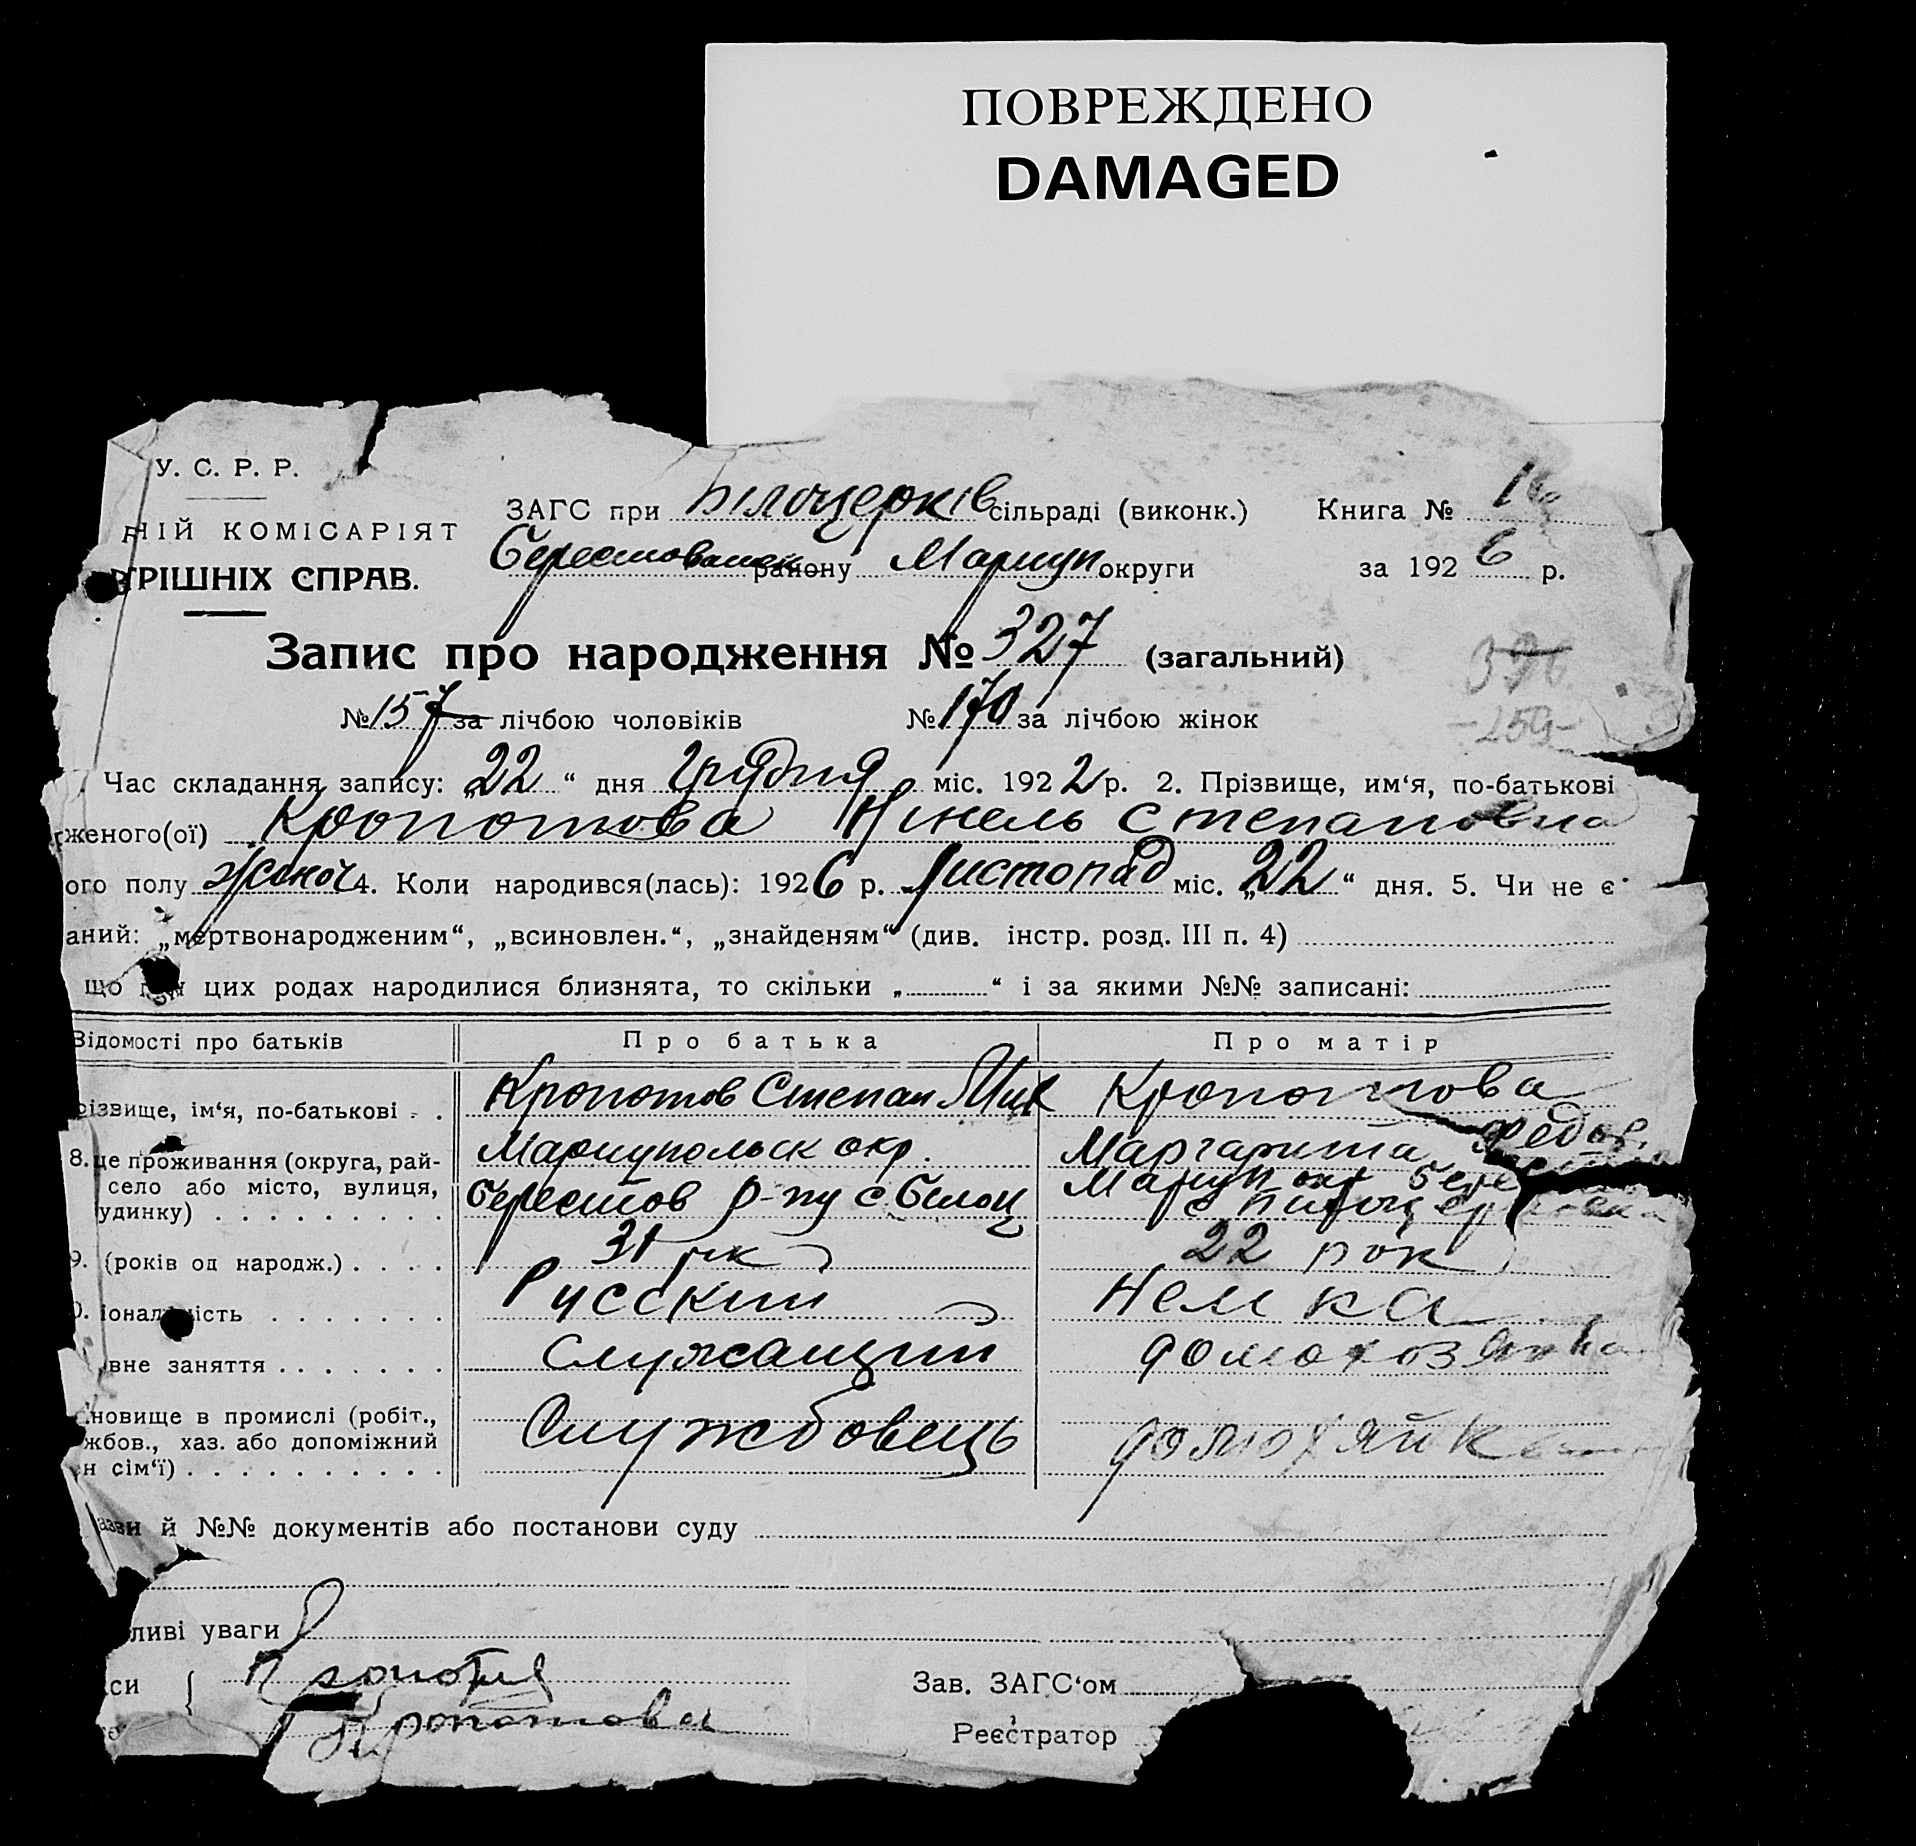 ПОВРЕЖДЕНО
DAMAGED
У. С. Р. Р.
ЗАГС при Білоцерків сільраді (виконк.) Книга №
НІЙ КОМІСАРІЯТ
Берестованск району Мариуп округи за 1926 р.
ТРІШНІХ СПРАВ.
Запис про народження № 327 (загальний)
№ 157 за лічбою чоловіків № 170 за лічбою жінок
Час складання запису: „22“ дня Грудня міс. 1922 р. 2. Прізвище, им‘я, по-батькові
женого(ої) Кропотова Нінель Степановна
ого полу жіноч 4. Коли народився(лась): 1926 р. Листопад міс. „22“ дня. 5. Чи не є
аний: „мертвонародженим“, „всиновлен.“, „знайденям“ (див. інстр. розд. III п. 4)
що цих родах народилися близнята, то скільки „ “ і за якими №№ записані:
Відомості про батьків Про батька Про матір
різвище, ім‘я, по-батькові . . Кропотов Степан Мих Кропотова
Маргарита Федов
8. це проживання (округа, рай-
село або місто, вулиця,
удинку) . . . . . . . . . Мариупольск окр.
Берестов р-ну с Білоц Мариуп окр Бере
9. (років од народж.) . . . . 31 рік 22 рок
іональність . . . . . . . Русский Немка
вне заняття . . . . . . . Служащий домохозяйка
новище в промислі (робіт.,
жбов., хаз. або допоміжний
н сім‘ї) . . . . . . . . . . Службовець домохяйка
азви й №№ документів або постанови суду
ливі уваги
си {
Кропотова
Зав. ЗАГС‘ом
Реєстратор